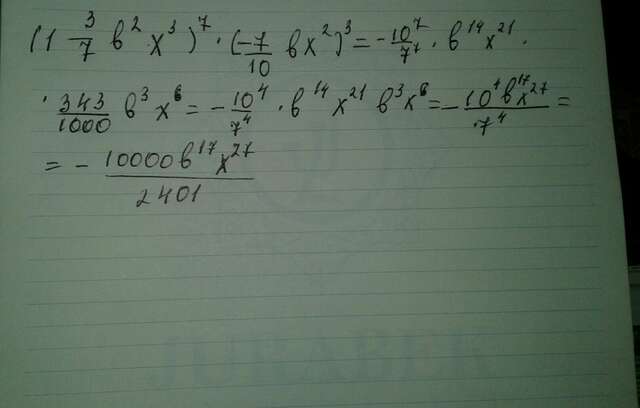 (1 3/7 в² x³)⁷ · (-7/10 вx²)³ = - 10⁷/7⁷ · в¹⁴x²¹ ·
· 343/1000 в³ x⁶ = - 10⁴/7⁴ · в¹⁴ x²¹ в³x⁶ = - 10⁴в¹⁷x²⁷/7⁴ =
= - 10000в¹⁷x²⁷/2401